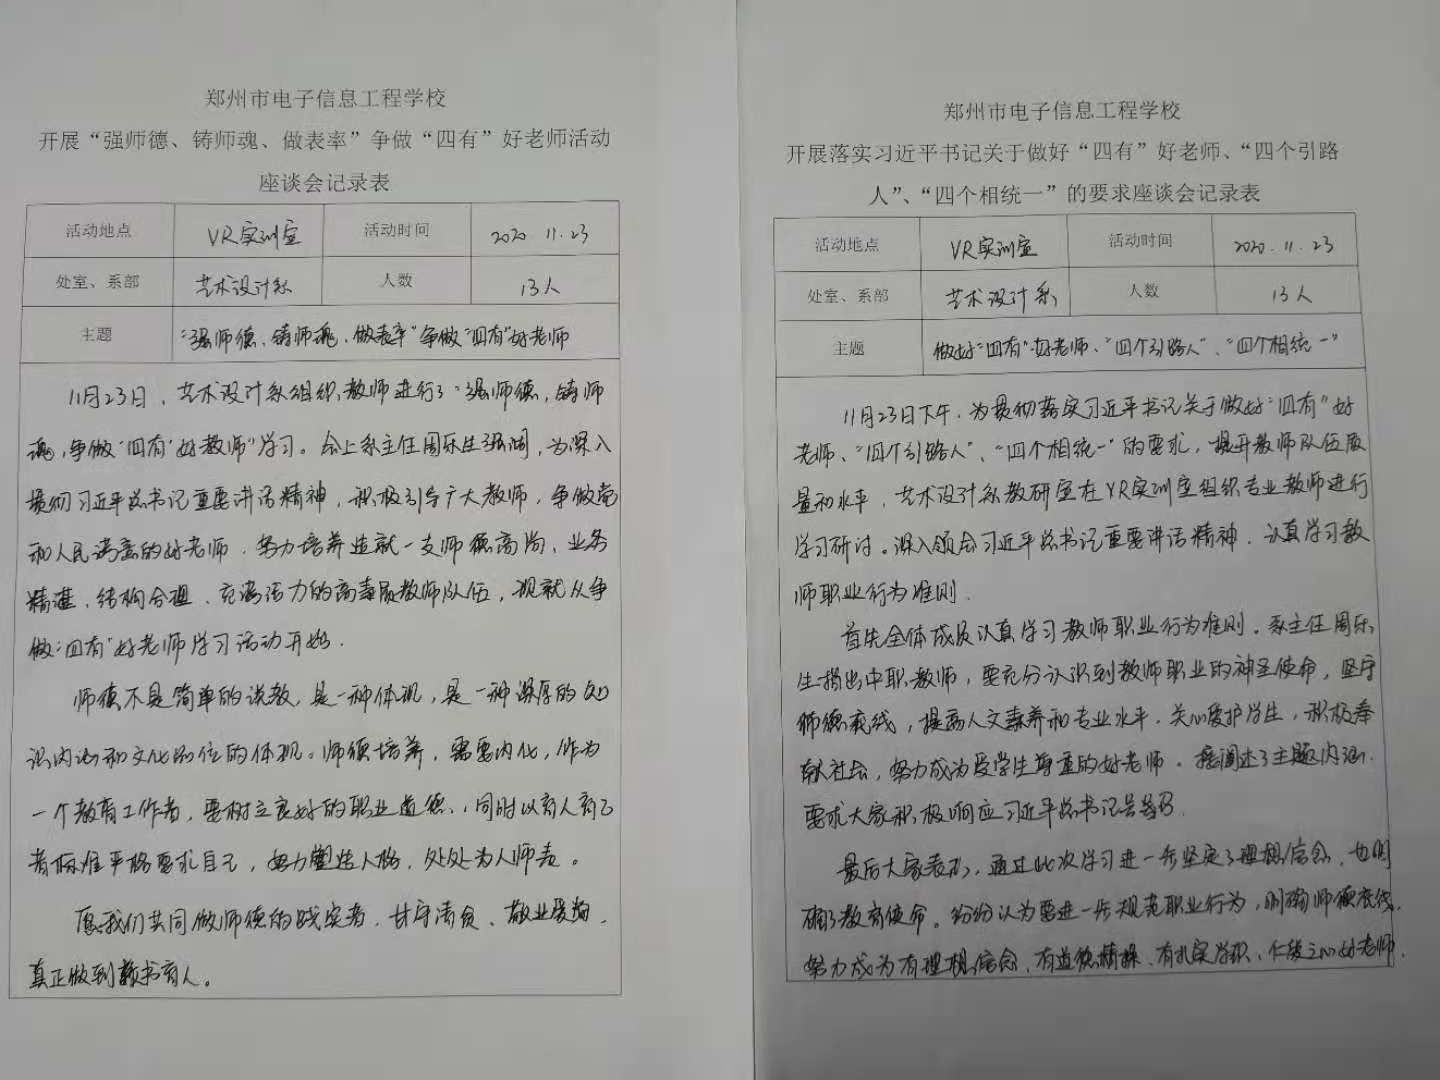 郑州市电子信息工程学校
开展“强师德、铸师魂、做表率”争做“四有”好老师活动
座谈会记录表
活动地点 VR实训室 活动时间 2020.11.23
处室、系部 艺术设计系 人数 13人
主题 “强师德、铸师魂、做表率”争做“四有”好老师
11月23日,艺术设计系组织教师进行了“强师德,铸师
魂,争做“四有”好教师”学习。会上系主任周乐生强调,为深入
贯彻习近平总书记重要讲话精神,积极引导广大教师,争做党
和人民满意的好老师.努力培养造就一支师德高尚、业务
精湛、结构合理、充满活力的高素质教师队伍,现就从争
做“四有”好老师学习活动开始.
师德不是简单的说教,是一种体现,是一种深厚的知
识内涵和文化品位的体现。师德培养,需要内化,作为
一个教育工作者,要树立良好的职业道德,同时以育人育己
者标准严格要求自己,努力塑造人格,处处为人师表。
愿我们共同做师德的践实者.甘守清贫、敬业爱岗,
真正做到教书育人。
郑州市电子信息工程学校
开展落实习近平书记关于做好“四有”好老师、“四个引路
人”、“四个相统一”的要求座谈会记录表
活动地点 VR实训室 活动时间 2020.11.23
处室、系部 艺术设计系 人数 13人
主题 做好“四有”好老师、“四个引路人”、“四个相统一”
11月23日下午,为贯彻落实习近平书记关于做好“四有”好
老师、“四个引路人”、“四个相统一”的要求,提升教师队伍质
量和水平,艺术设计系教研室在VR实训室组织专业教师进行
学习研讨。深入领会习近平总书记重要讲话精神.认真学习教
师职业行为准则.
首先全体成员认真学习教师职业行为准则。系主任周乐
生指出中职教师,要充分认识到教师职业的神圣使命,坚守
师德底线,提高人文素养和专业水平.关心爱护学生,积极奉
献社会,努力成为受学生尊重的好老师。接阐述了主题内涵.
要求大家积极响应习近平总书记号召.
最后大家表示,通过此次学习进一步坚定了理想信念,也明
确了教育使命。纷纷认为要进一步规范职业行为,明确师德底线.
努力成为有理想信念、有道德情操、有扎实学识、仁爱之心好老师.